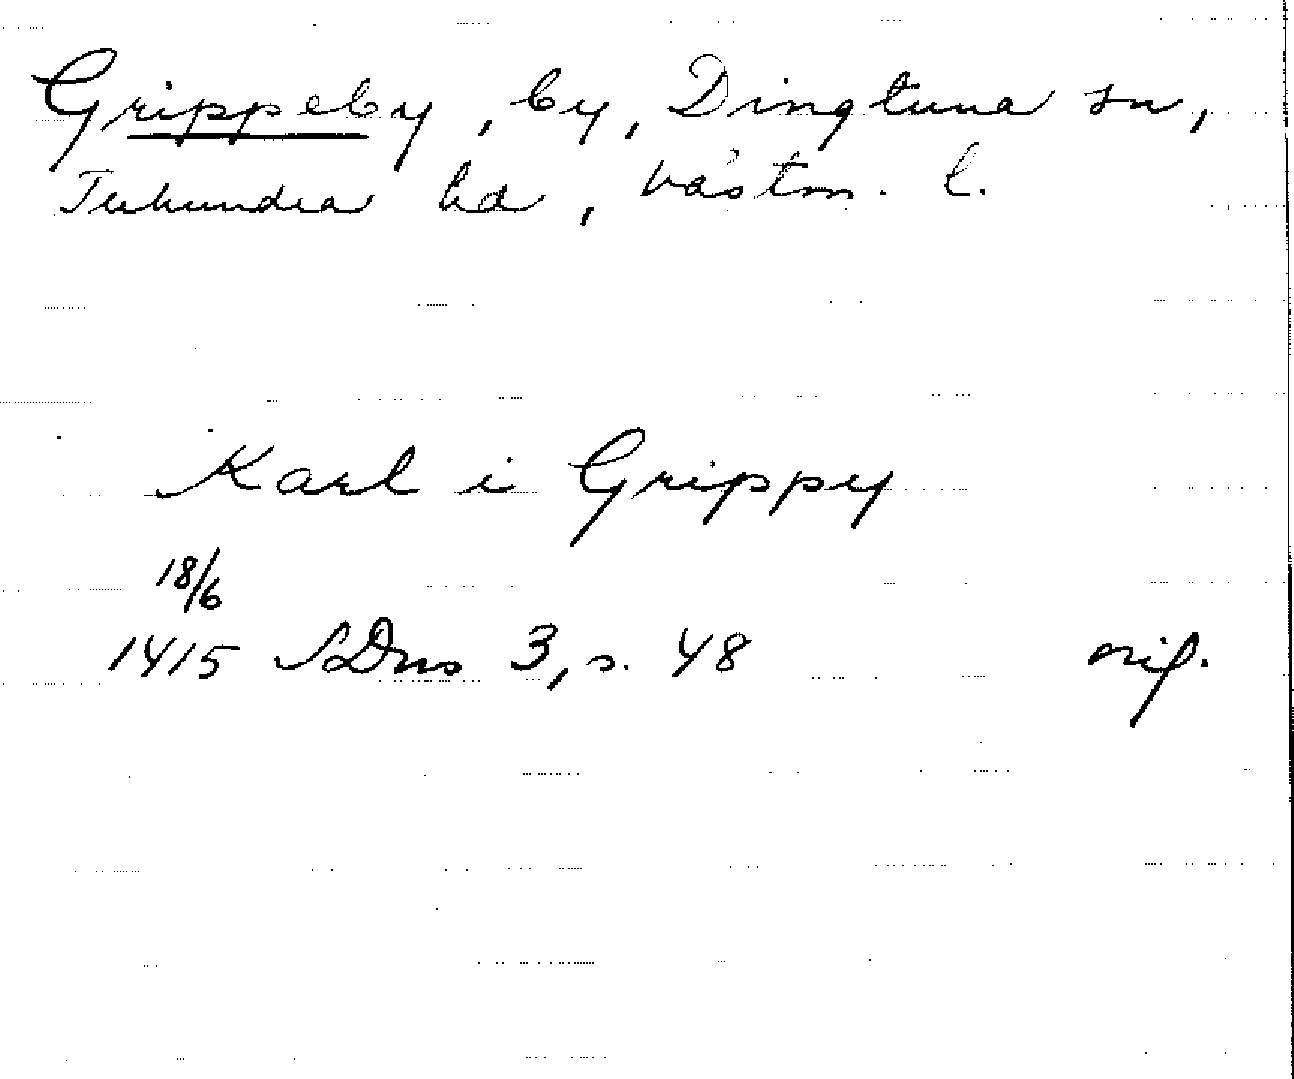 Grippeby, by, Dingtuna sn,
Tuhundra hd, Västm. l.
Karl i Grippy
18/6
1415 SDns 3, s. 48 orig.